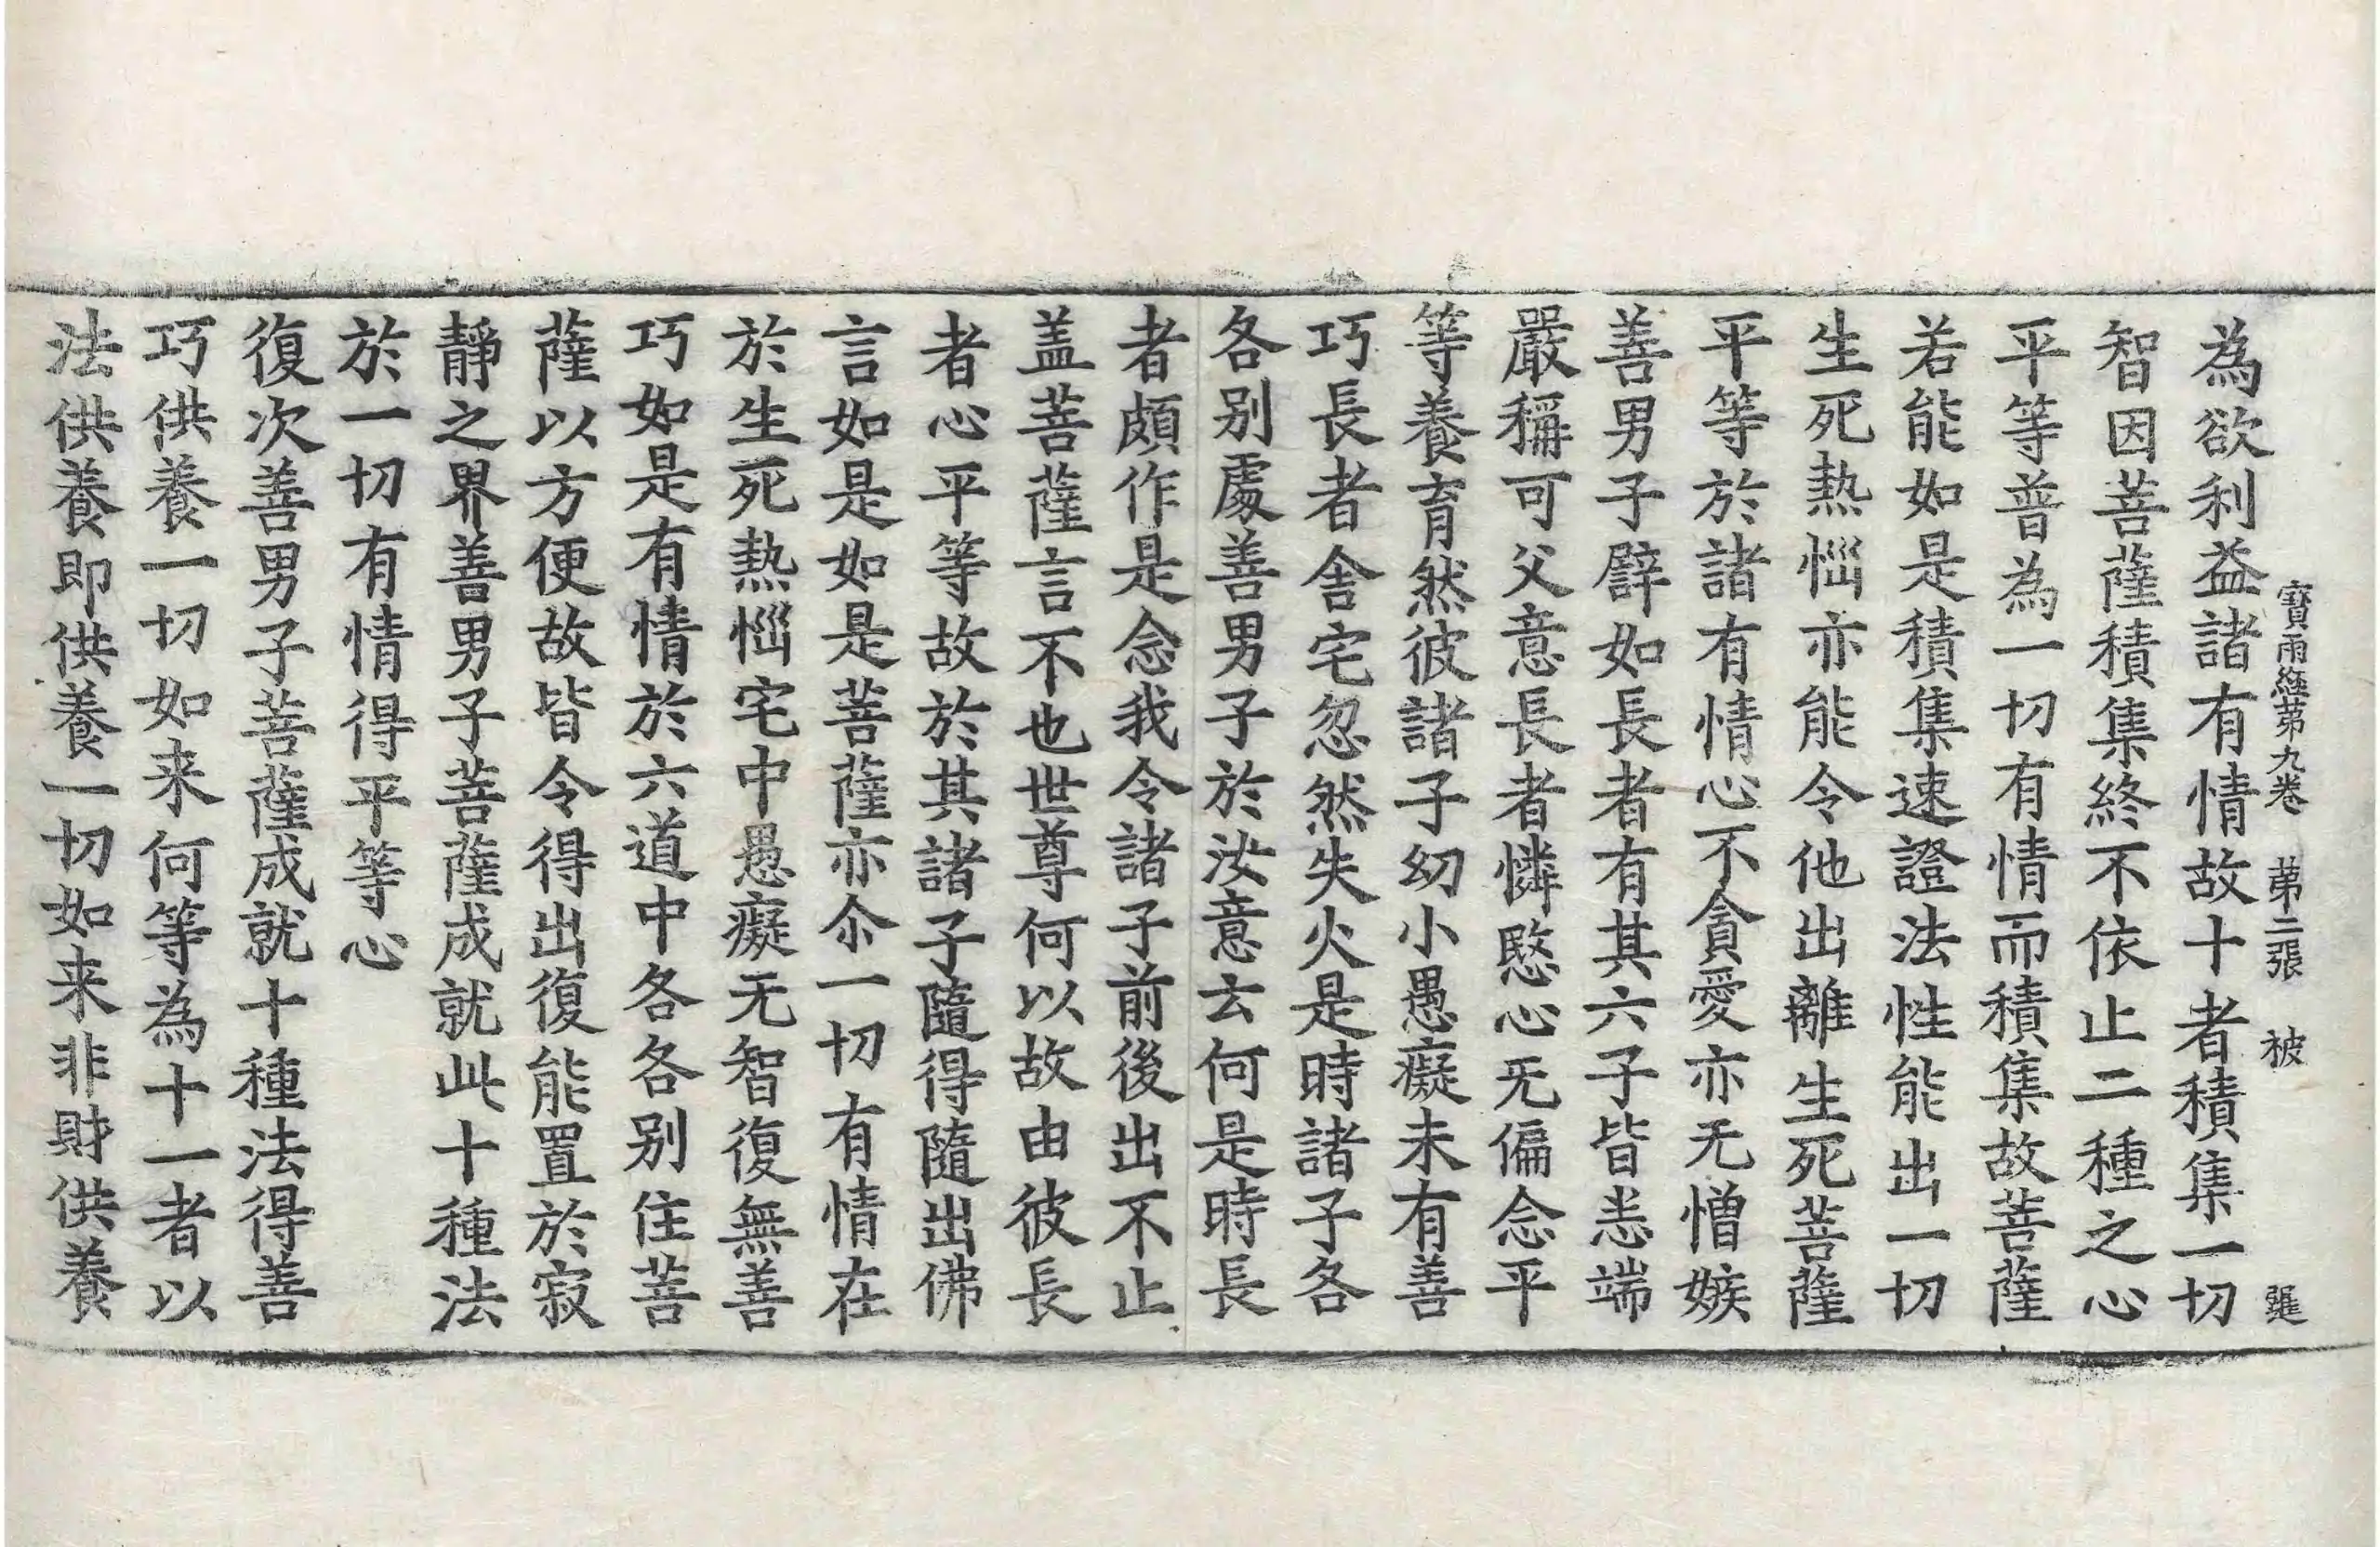 寶雨經苐九卷 苐二張 被
為欲利益諸有情故十者積集一切
智因菩薩積集終不依止二種之心
平等普為一切有情而積集故菩薩
若能如是積集速證法性能出一切
生死熱惱亦能令他出離生死菩薩
平等於諸有情心不貪愛亦无憎嫉
善男子譬如長者有其六子皆恙端
嚴稱可父意長者憐愍心无偏念平
等養育然彼諸子幼小愚癡未有善
巧長者舍宅忽然失火是時諸子各
各别處善男子於汝意云何是時長
者頗作是念我令諸子前後出不止
盖菩薩言不也世尊何以故由彼長
者心平等故於其諸子隨得隨出佛
言如是如是菩薩亦尒一切有情在
於生死熱惱宅中愚癡无智復無善
巧如是有情於六道中各各别住菩
薩以方便故皆令得出復能置於寂
靜之界善男子菩薩成就此十種法
於一切有情得平等心
復次善男子菩薩成就十種法得善
巧供養一切如来何等為十一者以
法供養即供養一切如来非財供養